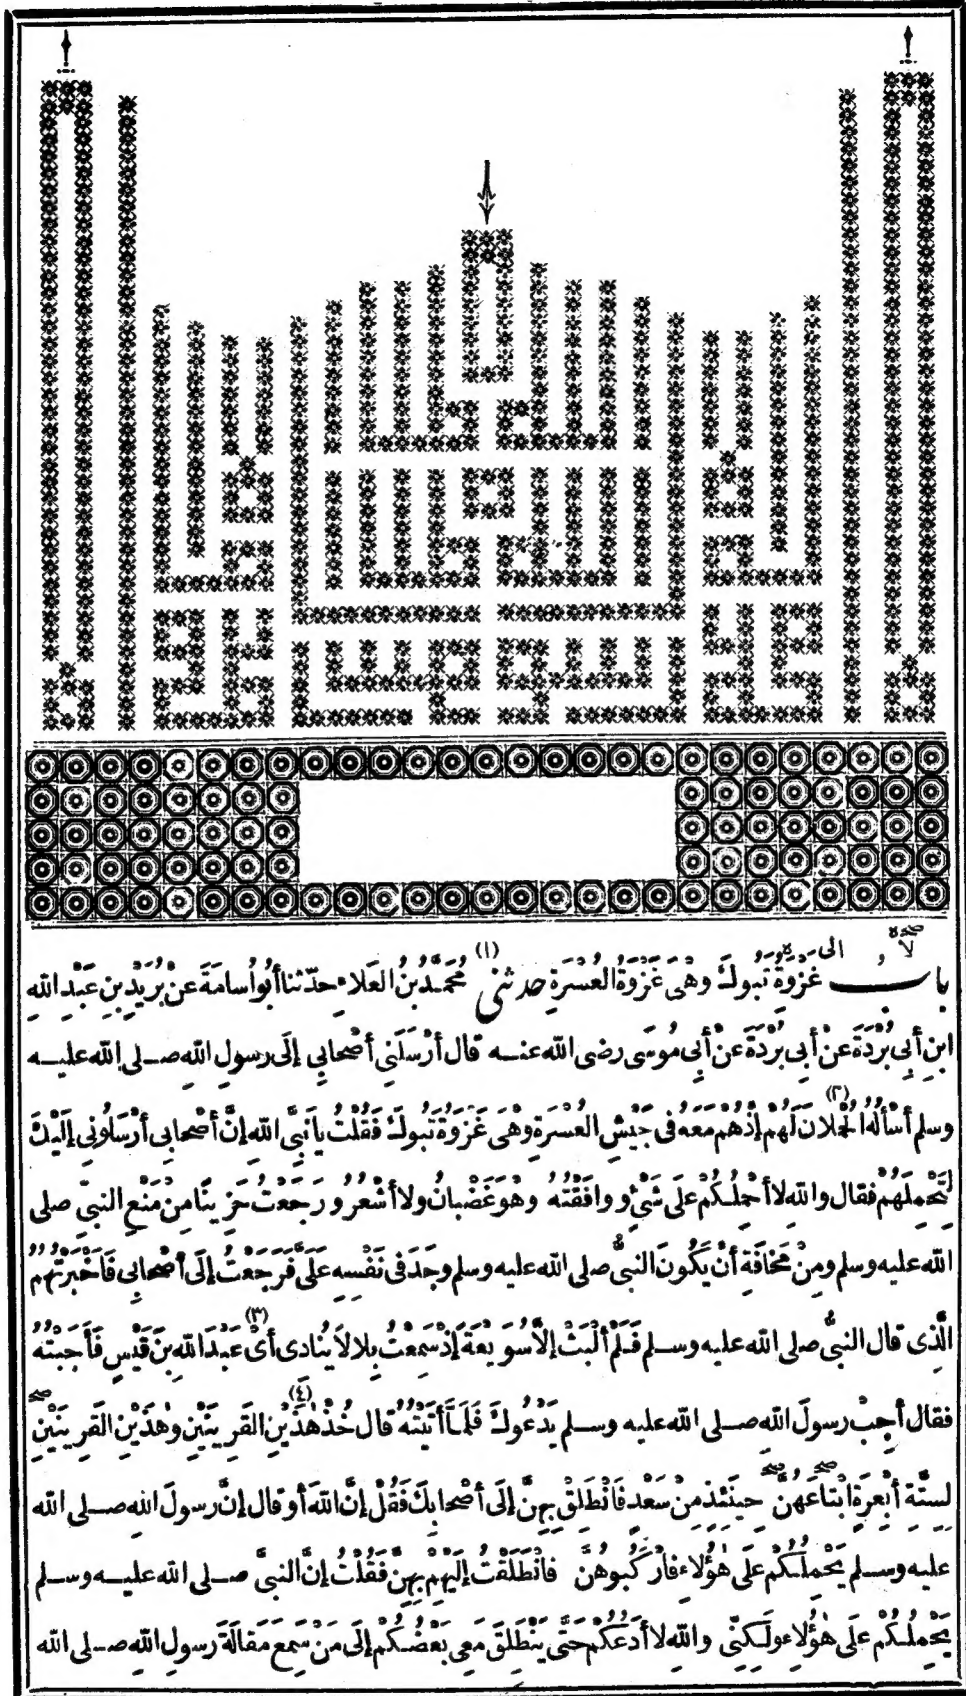 لا صـ ه
الى
باب غَزْوَةِ تَبُوكَ وَهْىَ غَزْوَةُ العُسْرَةِ حدثنى (١) مُحَمَّدُ بْنُ العَلاءِ حدّثنا أَبُو أُسامَةَ عَنْ بُرَيْدِ بنِ عَبْدِ اللهِ
ابنِ أَبِى بُرْدَةَ عَنْ أَبِى بُرْدَةَ عَنْ أَبِى مُوسَى رضى الله عنه قال أَرْسَلَنِى أَصْحابِى إِلَى رسولِ اللهِ صلى الله عليه
وسلم أَسْأَلُهُ الْحُمْلانَ (٢) لَهُم إِذْ هُمْ مَعَهُ فى جَيْشِ العُسْرَةِ وَهْىَ غَزْوَةُ تَبُوكَ فَقُلْتُ يا نَبِىَّ اللهِ إِنَّ أَصْحابِى أَرْسَلُونِى إِلَيْكَ
لِتَحْمِلَهُمْ فقال واللهِ لا أَحْمِلُكُمْ عَلَى شَىْءٍ ووافَقْتُهُ وهْوَ غَضْبانُ ولا أَشْعُرُ ورَجَعْتُ حَزِينًا مِنْ مَنْعِ النبىِّ صلى
الله عليه وسلم ومِنْ مَخافَةِ أَنْ يَكُونَ النبىُّ صلى الله عليه وسلم وجَدَ فى نَفْسِهِ عَلَىَّ فَرَجَعْتُ إِلَى أَصْحابِى فَأَخْبَرْتُهُمُ
الَّذِى قال النبىُّ صلى الله عليه وسلم فَلَمْ أَلْبَثْ إِلَّا سُوَيْعَةً إِذْ سَمِعْتُ بِلالًا يُنادِى أَىْ (٣) عَبْدَ اللهِ بنَ قَيْسٍ فَأَجَبْتُهُ
فقال أَجِبْ رسولَ اللهِ صلى الله عليه وسلم يَدْعُوكَ فَلَمَّا أَتَيْتُهُ قال خُذْ هٰذَيْنِ (٤) القَرِينَيْنِ وهٰذَيْنِ القَرِينَيْنِ صـ
لِسِتَّةِ أَبْعِرَةٍ ابْتاعَهُنَّ حِينَئِذٍ مِنْ سَعْدٍ فَانْطَلِقْ بِهِنَّ إِلَى أَصْحابِكَ فَقُلْ إِنَّ اللهَ أَو قال إِنَّ رسولَ اللهِ صلى الله
عليه وسلم يَحْمِلُكُمْ عَلَى هٰؤُلاءِ فارْكَبُوهُنَّ فانْطَلَقْتُ إِلَيْهِمْ بِهِنَّ فَقُلْتُ إِنَّ النبىَّ صلى الله عليه وسلم
يَحْمِلُكُمْ عَلَى هٰؤُلاءِ ولٰكِنِّى واللهِ لا أَدَعُكُمْ حَتَّى يَنْطَلِقَ مَعِى بَعْضُكُمْ إِلَى مَنْ سَمِعَ مَقالَةَ رسولِ اللهِ صلى الله